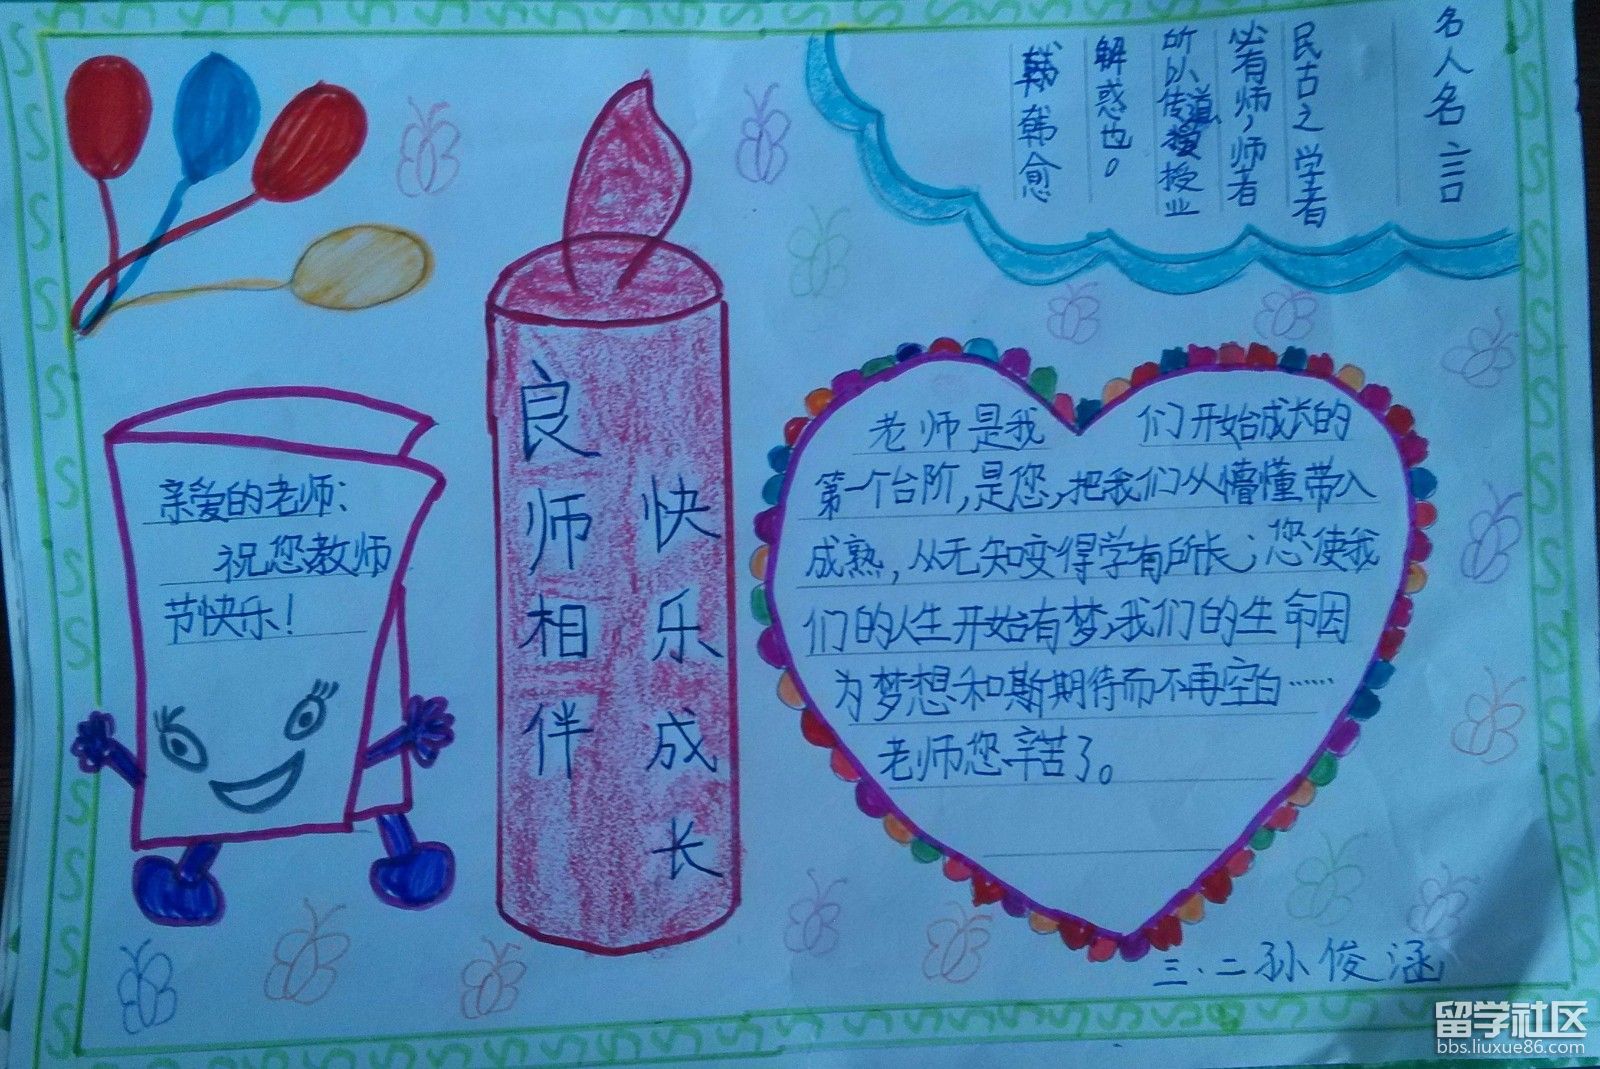 名人名言
民古之学者
必有师，师者
所以传道授业
解惑也。
韩愈
亲爱的老师：
祝您教师
节快乐！
良师相伴
快乐成长
老师是我们开始成长的
第一个台阶，是您，把我们从懵懂带入
成熟，从无知变得学有所长；您使我
们的人生开始有梦，我们的生命因
为梦想和斯期待而不再空白……
老师您辛苦了。
三、二孙俊涵
留学社区
bbs.liuxue86.com